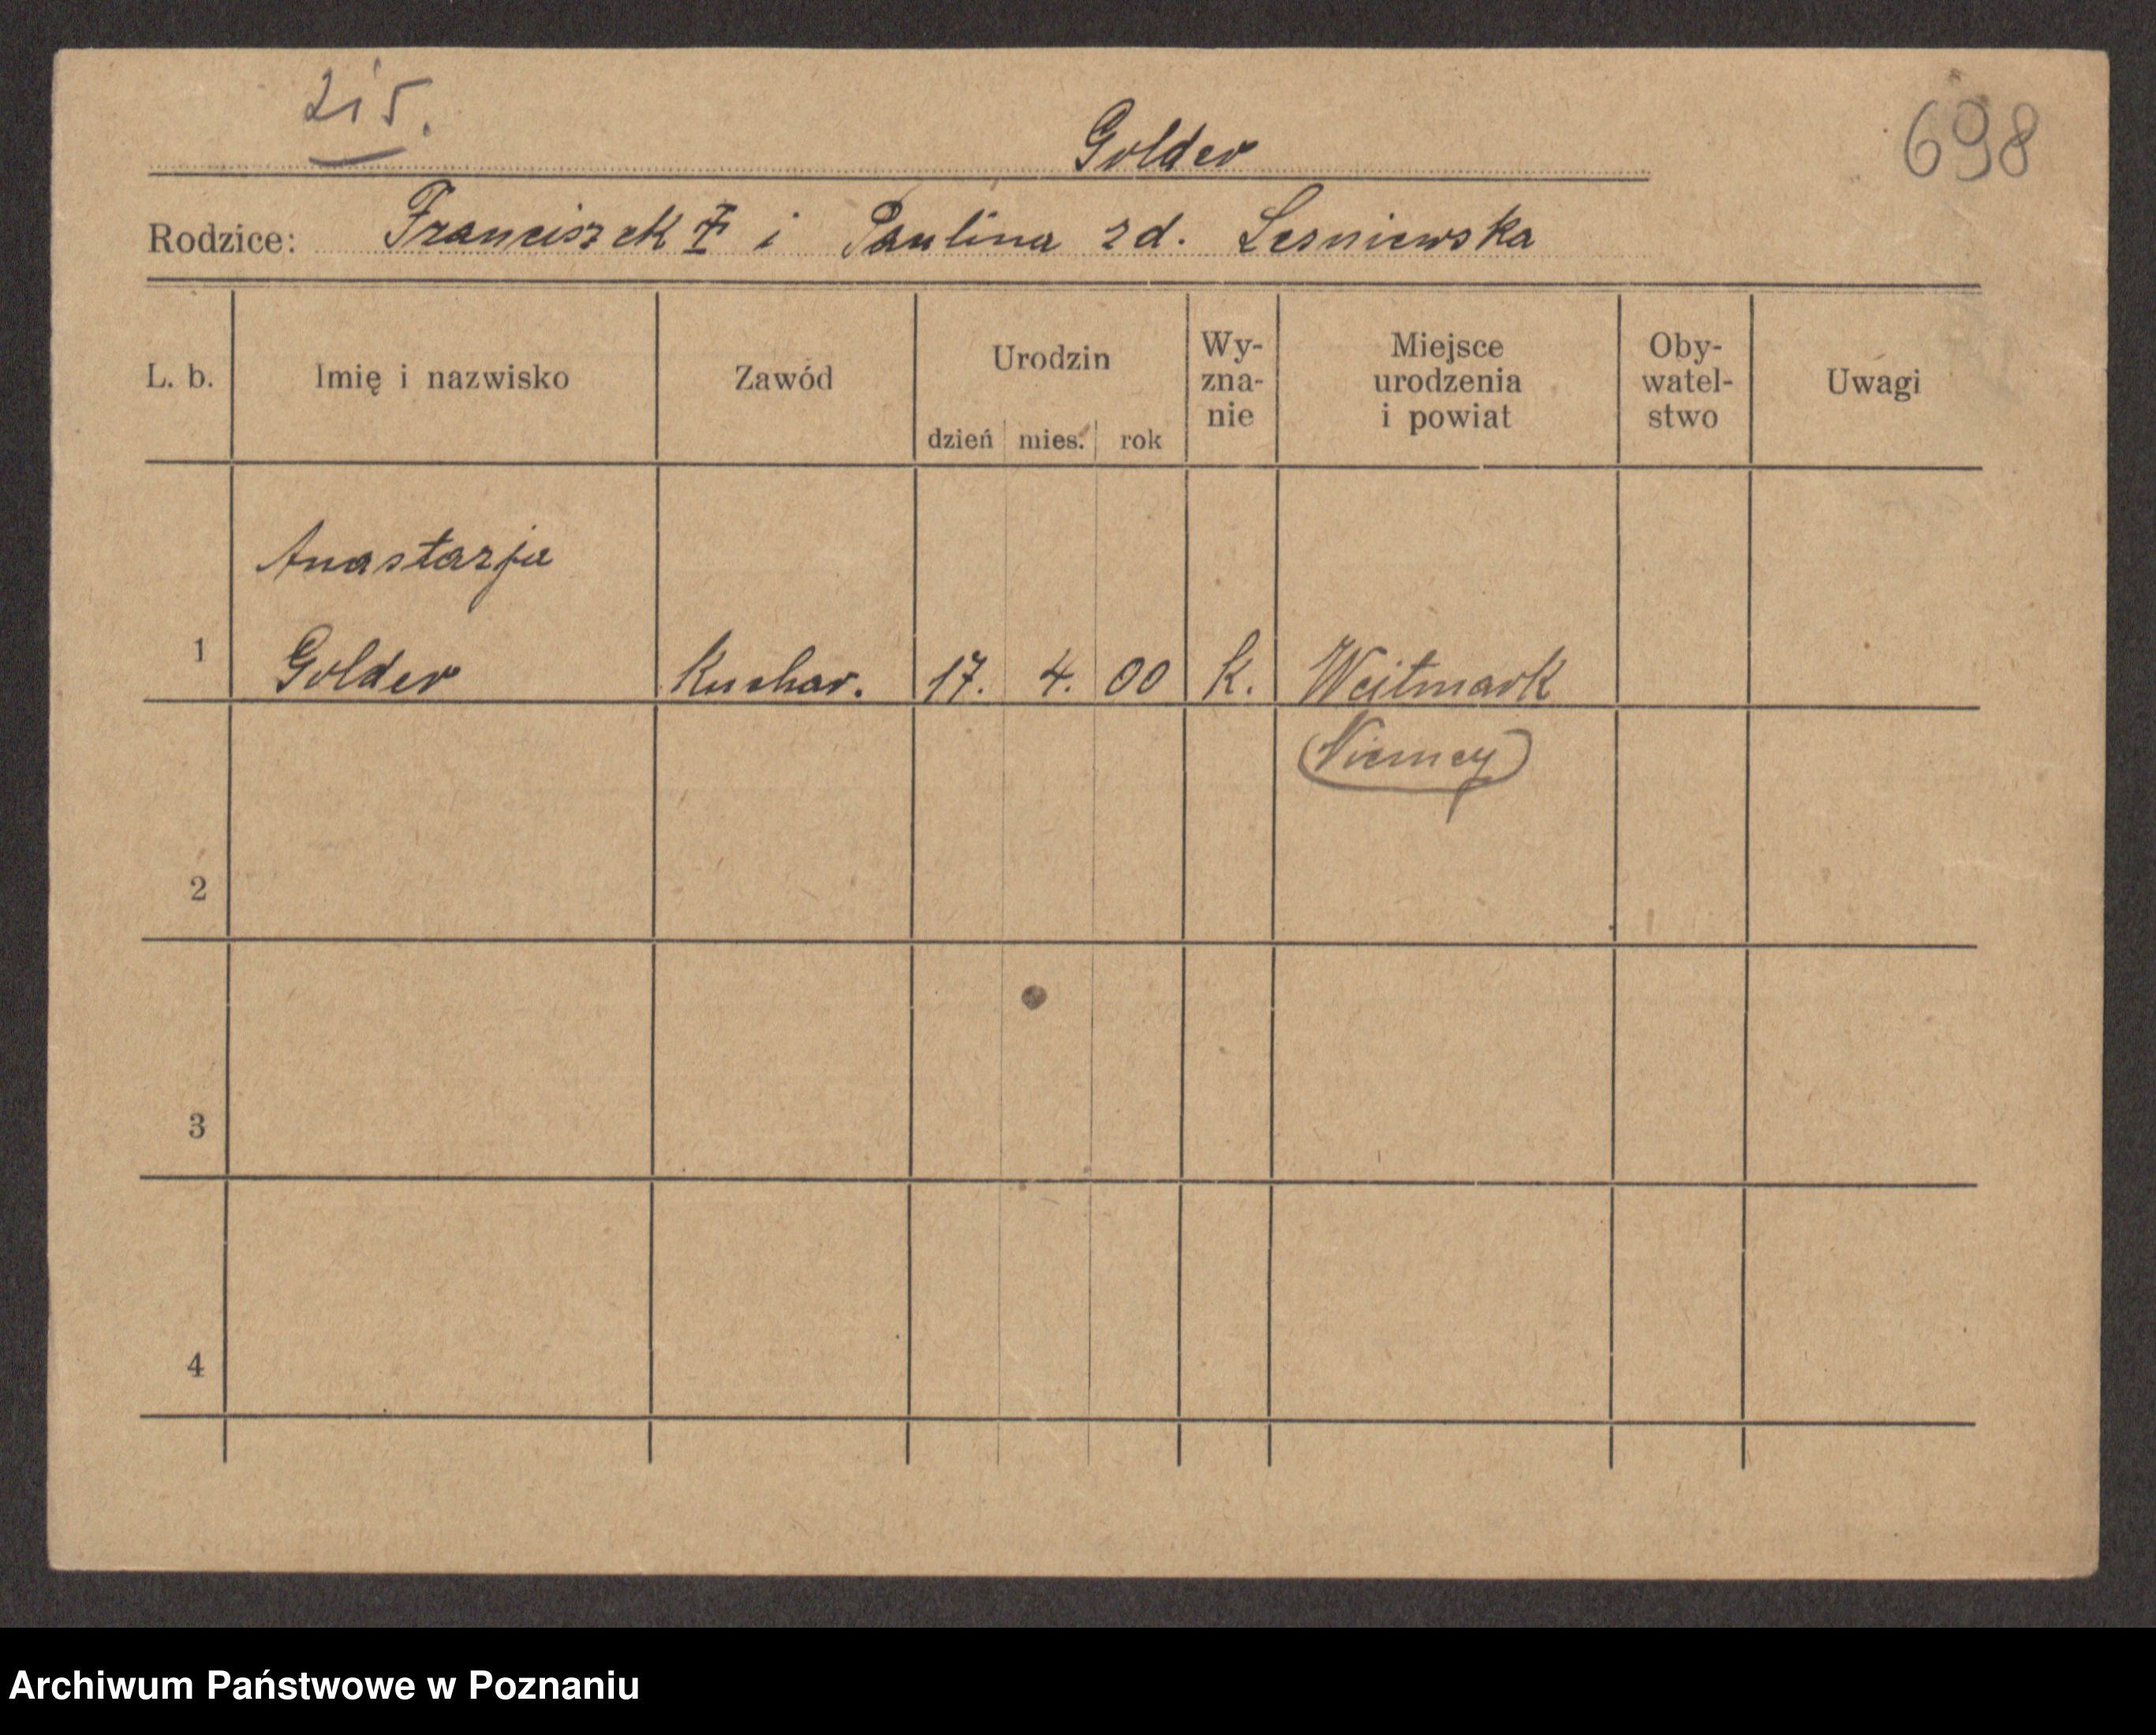 215.
Golder
698
Rodzice: Franciszek i Paulina zd. Lesniewska
L. b. Imię i nazwisko Zawód Urodzin dzień mies. rok Wy-zna-nie Miejsce urodzenia i powiat Oby-watel-stwo Uwagi
Anastazja
1 Golder Kuchar. 17. 4. 00 k. Weitmark
(Niemcy)
2
3
4
Archiwum Państwowe w Poznaniu